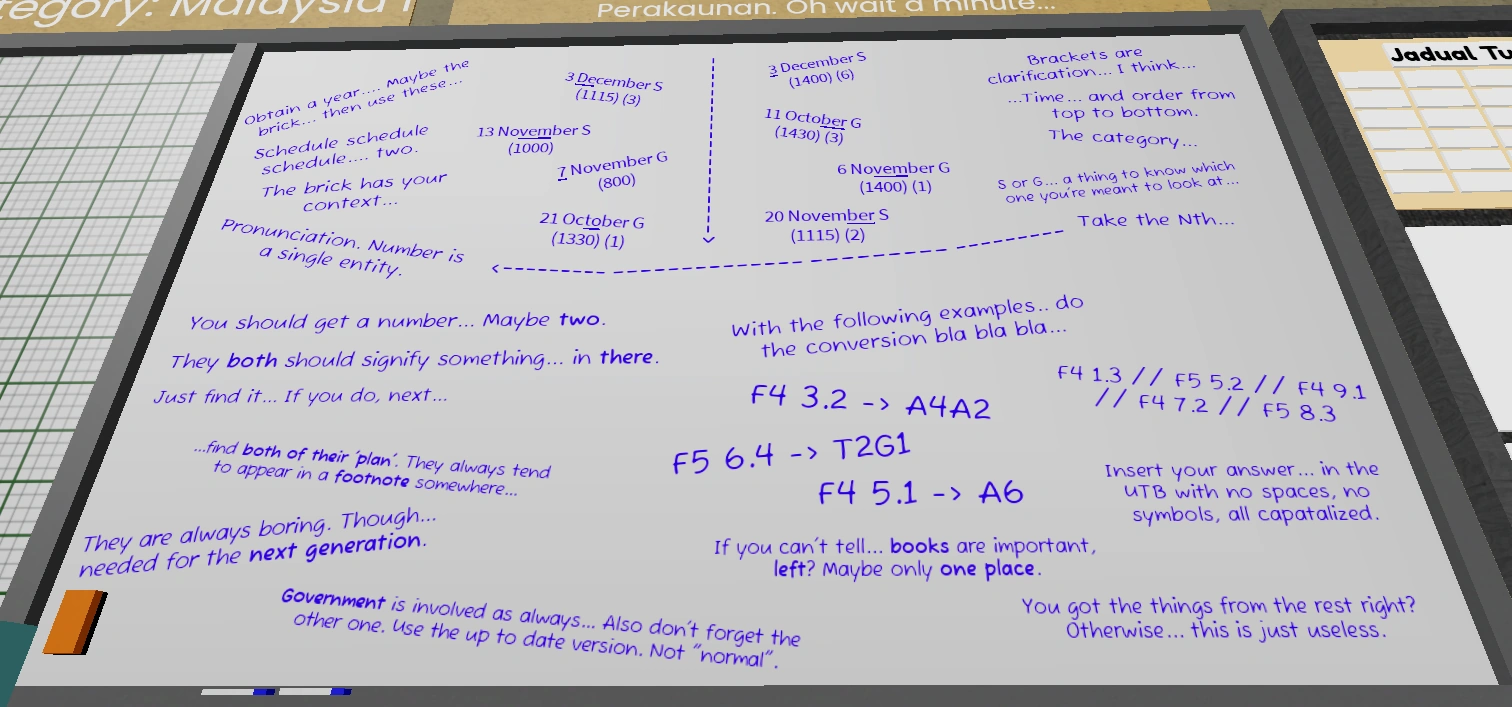 tegory: Malaysia
Perakaunan. Oh wait a minute...
Jadual Tu
Obtain a year.... Maybe the
brick... then use these...
Schedule schedule
schedule.... two.
The brick has your
context...
Pronunciation. Number is
a single entity.
3 December S
(1115) (3)
13 November S
(1000)
7 November G
(800)
21 October G
(1330) (1)
3 December S
(1400) (6)
11 October G
(1430) (3)
6 November G
(1400) (1)
20 November S
(1115) (2)
Brackets are
clarification... I think...
...Time... and order from
top to bottom.
The category...
S or G... a thing to know which
one you're meant to look at...
Take the Nth...
You should get a number... Maybe two.
They both should signify something... in there.
Just find it... If you do, next...
...find both of their 'plan'. They always tend
to appear in a footnote somewhere...
They are always boring. Though...
needed for the next generation.
Government is involved as always... Also don't forget the
other one. Use the up to date version. Not "normal".
With the following examples.. do
the conversion bla bla bla...
F4 3.2 -> A4A2
F5 6.4 -> T2G1
F4 5.1 -> A6
If you can't tell... books are important,
left? Maybe only one place.
F4 1.3 // F5 5.2 // F4 9.1
// F4 7.2 // F5 8.3
Insert your answer... in the
UTB with no spaces, no
symbols, all capatalized.
You got the things from the rest right?
Otherwise... this is just useless.